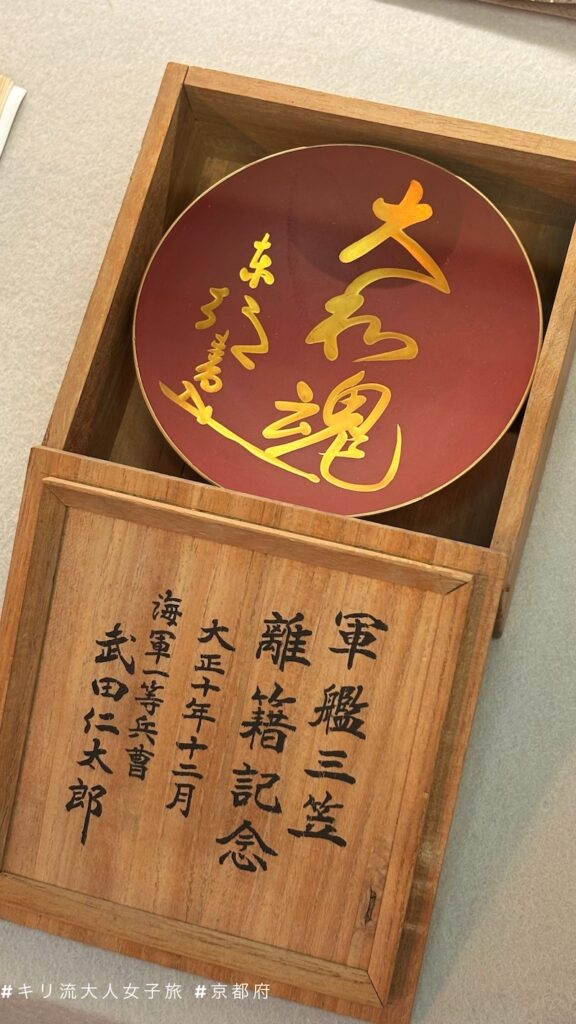 大和魂
東郷書
軍艦三笠
離籍記念
大正十年十二月
海軍一等兵曹
武田仁太郎
#キリ流大人女子旅 #京都府